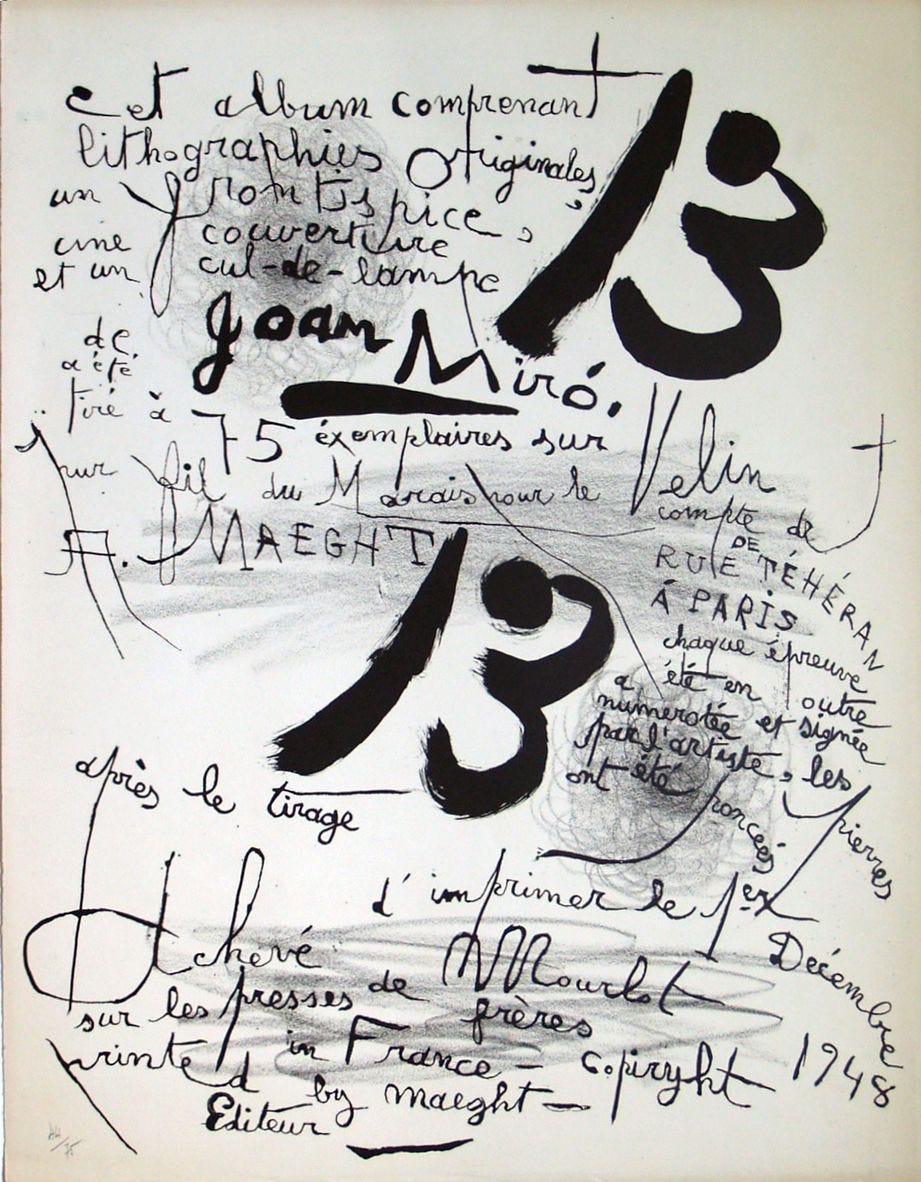 Cet album comprenant 13
lithographies Originales,
un frontispice,
une couverture
et un cul-de-lampe
de Joan Miró.
a été
tiré à 75 éxemplaires sur Velin
pur fil du Marais pour le compte de
A. MAEGHT 13 RUE DE TÉHÉRAN
À PARIS
chaque épreuve
a été en outre
numerotée et signée
par l'artiste, les pierres
ont été poncées
après le tirage
Achevé d'imprimer le 1er Décembre 1948
sur les presses de Mourlot
frères
printed in France - copiryht
by maeght -
Editeur
/75